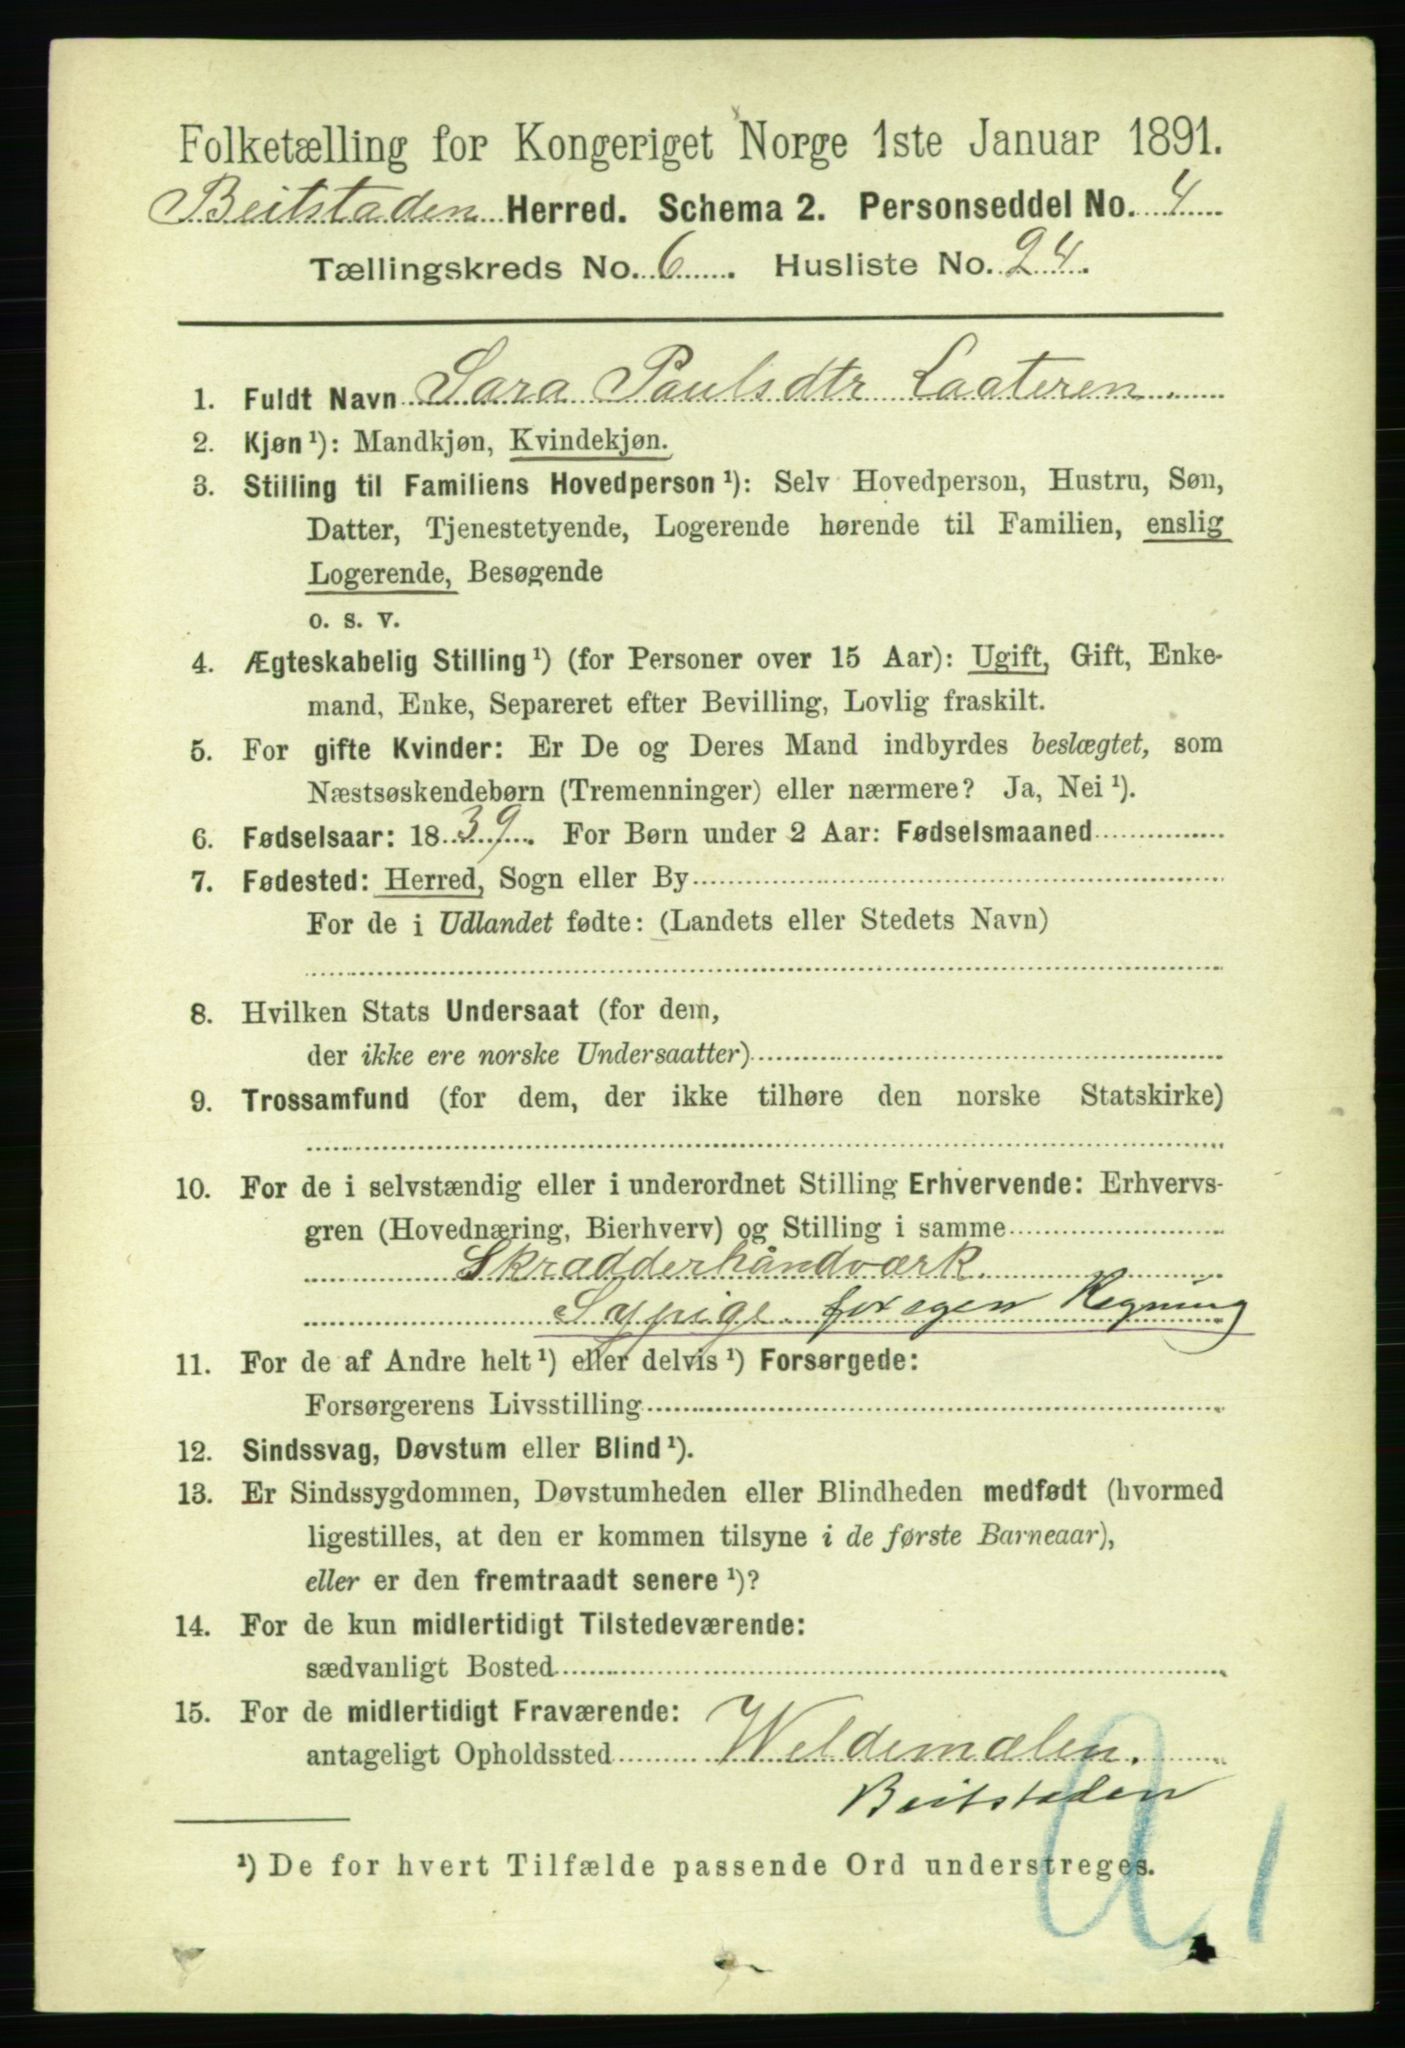 Folketælling for Kongeriget Norge 1ste Januar 1891.
Beitstaden Herred. Schema 2. Personseddel No. 4
Tællingskreds No. 6. Husliste No. 24.
1. Fuldt Navn Sara Paulsdtr Laateren.
2. Kjøn¹): Mandkjøn, Kvindekjøn.
3. Stilling til Familiens Hovedperson¹): Selv Hovedperson, Hustru, Søn,
Datter, Tjenestetyende, Logerende hørende til Familien, enslig
Logerende, Besøgende
o. s. v.
4. Ægteskabelig Stilling¹) (for Personer over 15 Aar): Ugift, Gift, Enke-
mand, Enke, Separeret efter Bevilling, Lovlig fraskilt.
5. For gifte Kvinder: Er De og Deres Mand indbyrdes beslægtet, som
Næstsøskendebørn (Tremenninger) eller nærmere? Ja, Nei¹).
6. Fødselsaar: 1839. For Børn under 2 Aar: Fødselsmaaned
7. Fødested: Herred, Sogn eller By
For de i Udlandet fødte: (Landets eller Stedets Navn)
8. Hvilken Stats Undersaat (for dem,
der ikke ere norske Undersaatter)
9. Trossamfund (for dem, der ikke tilhøre den norske Statskirke)
10. For de i selvstændig eller i underordnet Stilling Erhvervende: Erhvervs-
gren (Hovednæring, Bierhverv) og Stilling i samme
Skradderhåndværk.
Sypige for egen Regning
11. For de af Andre helt¹) eller delvis¹) Forsørgede:
Forsørgerens Livsstilling
12. Sindssvag, Døvstum eller Blind¹).
13. Er Sindssygdommen, Døvstumheden eller Blindheden medfødt (hvormed
ligestilles, at den er kommen tilsyne i de første Barneaar),
eller er den fremtraadt senere¹)?
14. For de kun midlertidigt Tilstedeværende:
sædvanligt Bosted
15. For de midlertidigt Fraværende:
antageligt Opholdssted Weldemælen.
Beitstaden
¹) De for hvert Tilfælde passende Ord understreges.